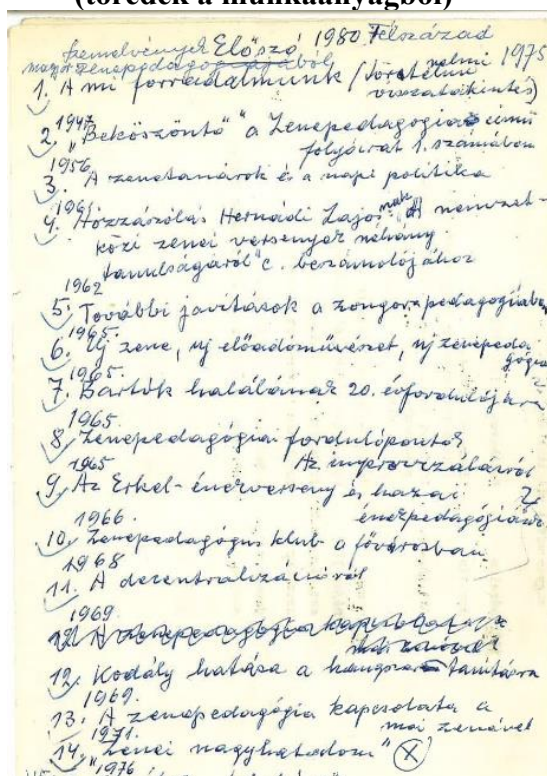 (töredék a munkaanyagból)
Szemelvények Előszó 1980 Félszázad
magyar zenepedagógiájából 1975
1. A mi forradalmunk (Történelmi
visszatekintés)
1947
2. „Beköszöntő" a Zenepedagógia című
folyóirat 1. számában
1956
3. A zenetanárok és a napi politika
1961
4. Hozzászólás Hernádi Lajosnak „A nemzet-
közi zenei versenyek néhány
tanulságáról" c. beszámolójához
1962
5. További javítások a zongorapedagógiában
1965.
6. Új zene, új előadóművészet, új zenepeda
gógia
1965.
7. Bartók halálának 20. évfordulójára
1965.
8. Zenepedagógia fordulóponton
Az improvizálásról
1965
9. Az Erkel-énekverseny és hazai
énekpedagógiánk
1966.
10. Zenepedagógus klub a fővárosban
1968
11. A decentralizációról
1969.
12. A zenepedagógia kapcsolata a
mai zenével
12. Kodály hatása a hangszertanításra
1969.
13. A zenepedagógia kapcsolata a
mai zenével
1971.
14. „Zenei nagyhatalom" X
1976